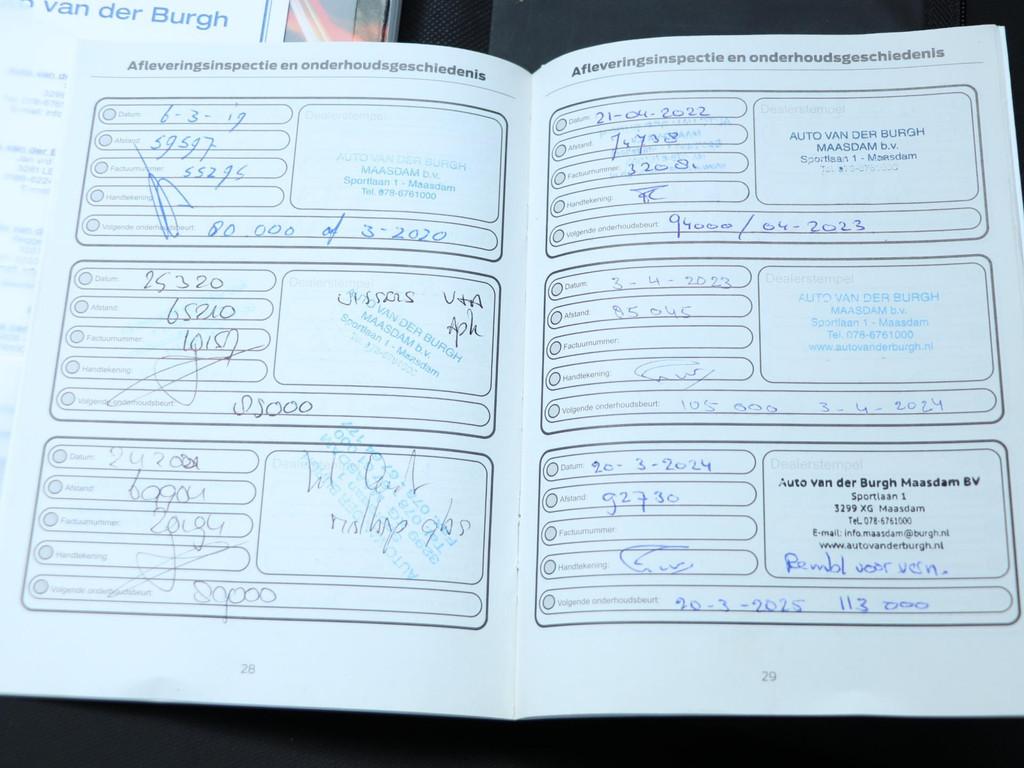 van der Burgh
Afleveringsinspectie en onderhoudsgeschiedenis
Datum: 6-3-19
Afstand: 59597
Factuurnummer: 55295
Handtekening:
Volgende onderhoudsbeurt: 80.000 of 3-2020
AUTO VAN DER BURGH
MAASDAM b.v.
Sportlaan 1 - Maasdam
Tel. 078-6761000
Datum: 25320
Afstand: 65210
Factuurnummer:
Handtekening:
Volgende onderhoudsbeurt:
Dealerstempel
VAN DER BURGH
MAASDAM b.v.
Sportlaan 1 - Maasdam
Datum:
Afstand:
Factuurnummer:
Handtekening:
Volgende onderhoudsbeurt:
28
Afleveringsinspectie en onderhoudsgeschiedenis
Datum: 21-04-2022
Afstand: 74798
Factuurnummer:
Handtekening:
Volgende onderhoudsbeurt: 94000 / 04-2023
Dealerstempel
AUTO VAN DER BURGH
MAASDAM b.v.
Sportlaan 1 - Maasdam
Datum: 3-4-2023
Afstand: 85045
Factuurnummer:
Handtekening:
Volgende onderhoudsbeurt: 105 000 3-4-2024
Dealerstempel
AUTO VAN DER BURGH
MAASDAM b.v.
Sportlaan 1 - Maasdam
Tel. 078-6761000
www.autovanderburgh.nl
Datum: 20-3-2024
Afstand: 92730
Factuurnummer:
Handtekening:
Volgende onderhoudsbeurt: 20-3-2025 113 000
Dealerstempel
Auto van der Burgh Maasdam BV
Sportlaan 1
3299 XG Maasdam
Tel. 078-6761000
E-mail: info.maasdam@burgh.nl
www.autovanderburgh.nl
Rembl voor vern.
29